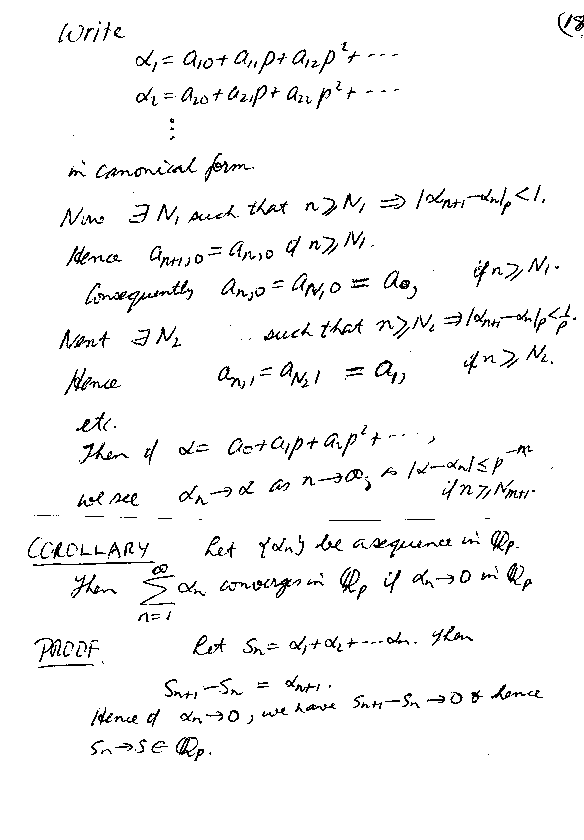 (18
Write
α₁ = a₁₀ + a₁₁p + a₁₂p² + ---
α₂ = a₂₀ + a₂₁p + a₂₂p² + ---
⋮
in canonical form.
Now ∃ N₁ such that n ≥ N₁ ⇒ |αₙ₊₁ - αₙ|ₚ < 1.
Hence aₙ₊₁,₀ = aₙ,₀ if n ≥ N₁.
Consequently aₙ,₀ = a_{N₁}0 = a₀, if n ≥ N₁.
Next ∃ N₂ such that n ≥ N₂ ⇒ |αₙ₊₁ - αₙ|ₚ < 1/p.
Hence aₙ,₁ = a_{N₂}1 = a₁, if n ≥ N₂.
etc.
Then if α = a₀ + a₁p + a₂p² + ---,
we see αₙ → α as n → ∞, as |α - αₙ| ≤ p^{-m} if n ≥ N_{m+1}.
COROLLARY Let {αₙ} be a sequence in ℚₚ.
Then ∑_{n=1}^{∞} αₙ converges in ℚₚ if αₙ → 0 in ℚₚ
PROOF. Let Sₙ = α₁ + α₂ + --- αₙ. Then
Sₙ₊₁ - Sₙ = αₙ₊₁.
Hence if αₙ → 0, we have Sₙ₊₁ - Sₙ → 0 & hence
Sₙ → S ∈ ℚₚ.